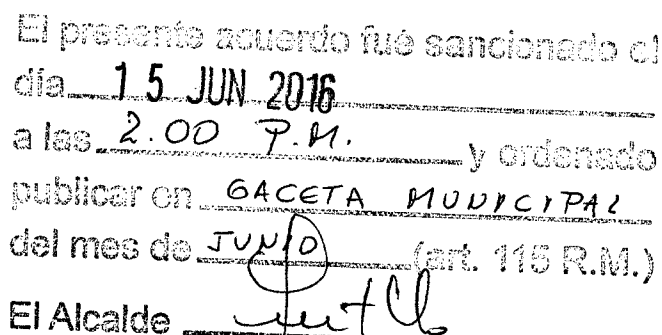 El presente acuerdo fué sancionado el
día 15 JUN 2016
a las 2.00 P.M. y ordenado
publicar en GACETA MUNICIPAL
del mes de JUNIO (art. 115 R.M.)
El Alcalde